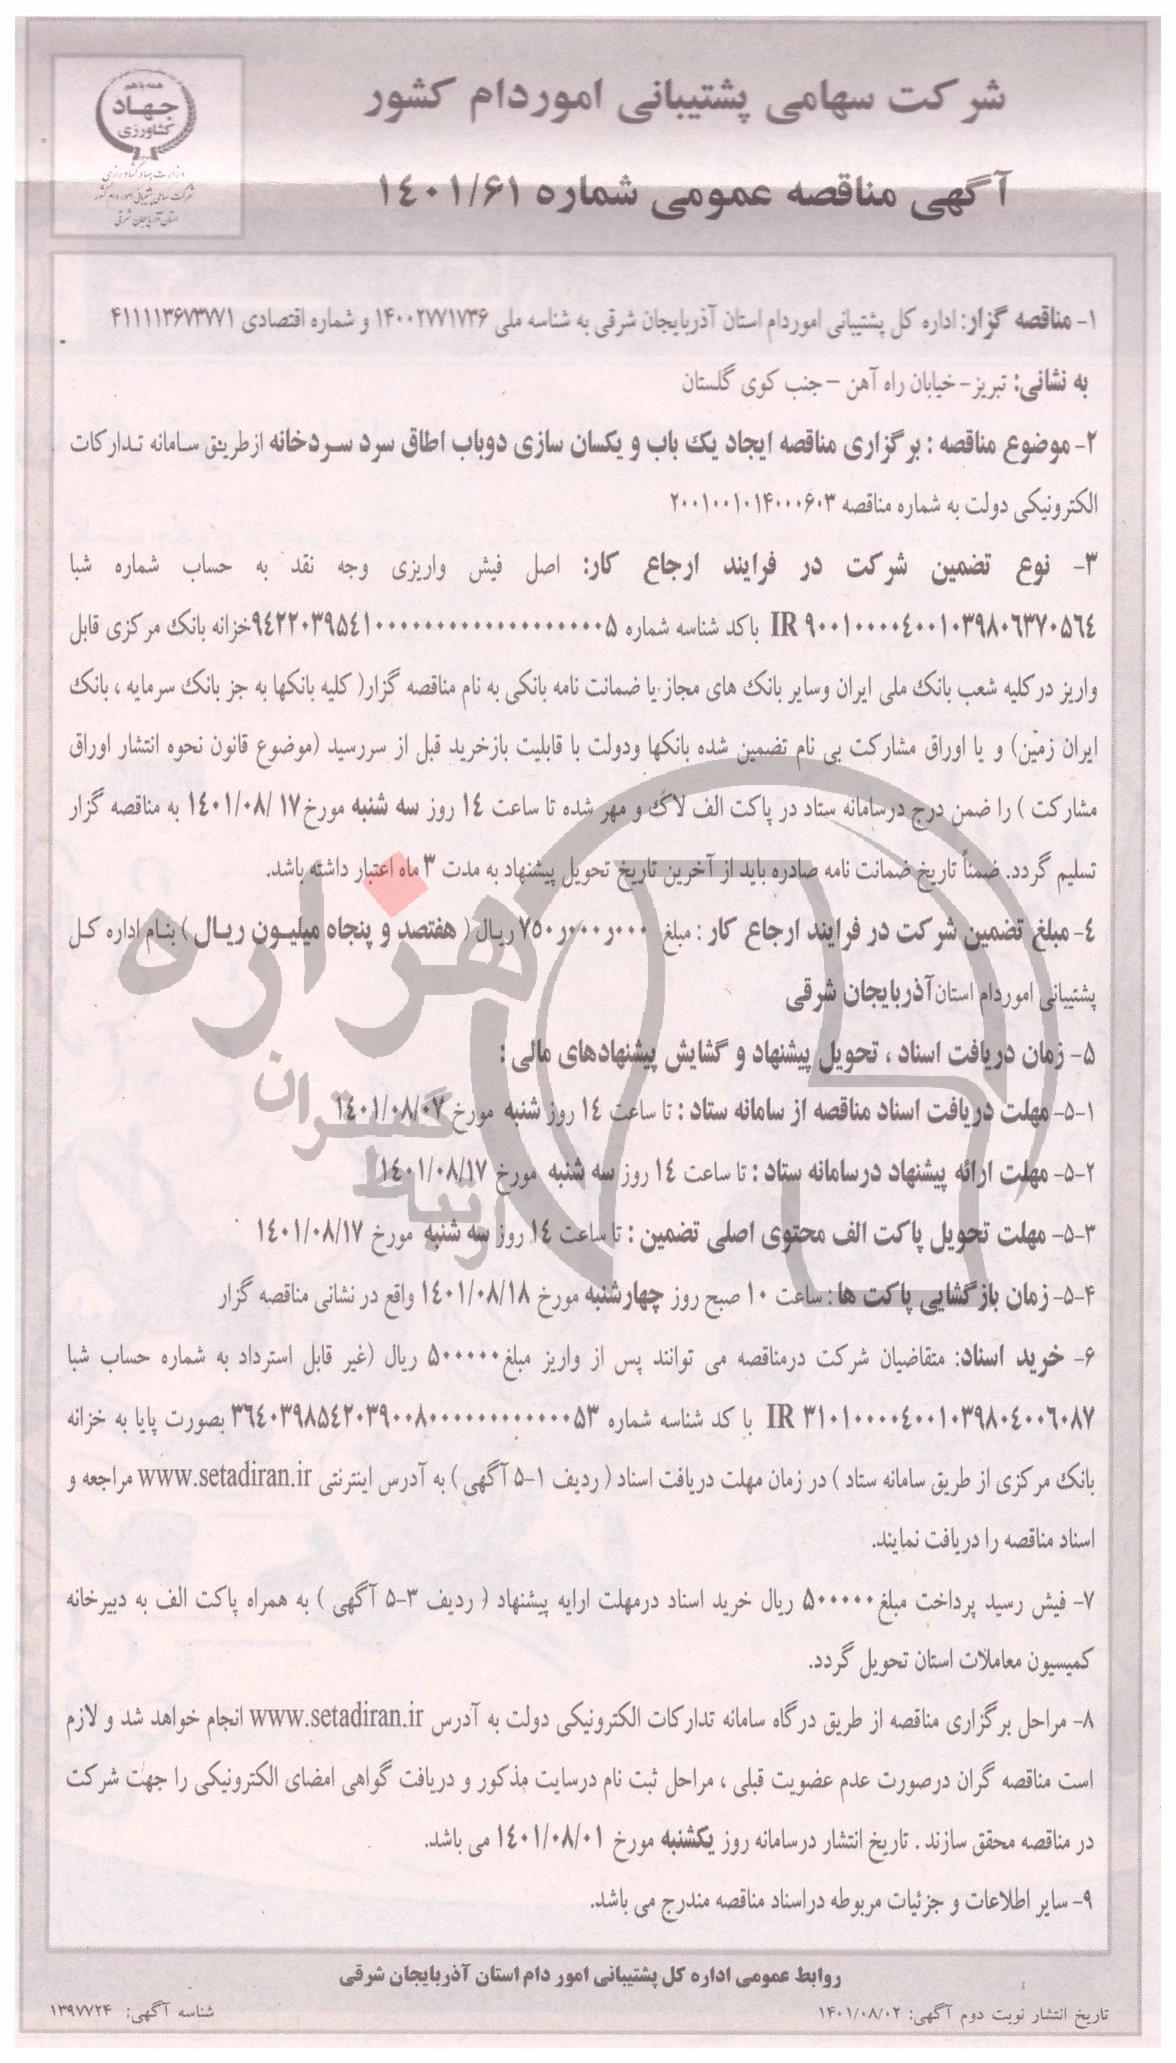 همه با هم
جهاد
کشاورزی
وزارت جهاد کشاورزی
شرکت سهامی پشتیبانی امور دام کشور
استان آذربایجان شرقی
شرکت سهامی پشتیبانی اموردام کشور
آگهی مناقصه عمومی شماره ۱۴۰۱/۶۱
۱- مناقصه گزار: اداره کل پشتیبانی اموردام استان آذربایجان شرقی به شناسه ملی ۱۴۰۰۲۷۷۱۷۳۶ و شماره اقتصادی ۴۱۱۱۱۳۶۷۳۷۷۱
به نشانی: تبریز- خیابان راه آهن – جنب کوی گلستان
۲- موضوع مناقصه : برگزاری مناقصه ایجاد یک باب و یکسان سازی دوباب اطاق سرد سردخانه ازطریق سامانه تدارکات
الکترونیکی دولت به شماره مناقصه ۲۰۰۱۰۰۱۰۱۴۰۰۰۶۰۳
۳- نوع تضمین شرکت در فرایند ارجاع کار: اصل فیش واریزی وجه نقد به حساب شماره شبا
IR ۹۰۰۱۰۰۰۰۴۰۰۱۰۳۹۸۰۶۳۷۰۵۶۴ باکد شناسه شماره خزانه بانک مرکزی قابل
واریز درکلیه شعب بانک ملی ایران وسایر بانک های مجاز یا ضمانت نامه بانکی به نام مناقصه گزار( کلیه بانکها به جز بانک سرمایه ، بانک
ایران زمین) و یا اوراق مشارکت بی نام تضمین شده بانکها ودولت با قابلیت بازخرید قبل از سررسید (موضوع قانون نحوه انتشار اوراق
مشارکت ) را ضمن درج درسامانه ستاد در پاکت الف لاک و مهر شده تا ساعت ۱۴ روز سه شنبه مورخ ۱۴۰۱/۰۸/۱۷ به مناقصه گزار
تسلیم گردد. ضمناً تاریخ ضمانت نامه صادره باید از آخرین تاریخ تحویل پیشنهاد به مدت ۳ ماه اعتبار داشته باشد.
۴- مبلغ تضمین شرکت در فرایند ارجاع کار : مبلغ ۷۵۰ر۰۰۰ر۰۰۰ ریال ( هفتصد و پنجاه میلیون ریال ) بنام اداره کل
پشتیبانی اموردام استان آذربایجان شرقی
۵- زمان دریافت اسناد ، تحویل پیشنهاد و گشایش پیشنهادهای مالی :
۵-۱- مهلت دریافت اسناد مناقصه از سامانه ستاد : تا ساعت ۱۴ روز شنبه مورخ ۱۴۰۱/۰۸/۰۷
۵-۲- مهلت ارائه پیشنهاد درسامانه ستاد : تا ساعت ۱۴ روز سه شنبه مورخ ۱۴۰۱/۰۸/۱۷
۵-۳- مهلت تحویل پاکت الف محتوی اصلی تضمین : تا ساعت ۱۴ روز سه شنبه مورخ ۱۴۰۱/۰۸/۱۷
۵-۴- زمان بازگشایی پاکت ها : ساعت ۱۰ صبح روز چهارشنبه مورخ ۱۴۰۱/۰۸/۱۸ واقع در نشانی مناقصه گزار
۶- خرید اسناد: متقاضیان شرکت درمناقصه می توانند پس از واریز مبلغ ۵۰۰۰۰۰ ریال (غیر قابل استرداد به شماره حساب شبا
IR ۳۱۰۱۰۰۰۰۴۰۰۱۰۳۹۸۰۴۰۰۶۰۸۷ با کد شناسه شماره بصورت پایا به خزانه
بانک مرکزی از طریق سامانه ستاد ) در زمان مهلت دریافت اسناد ( ردیف ۵-۱ آگهی ) به آدرس اینترنتی www.setadiran.ir مراجعه و
اسناد مناقصه را دریافت نمایند.
۷- فیش رسید پرداخت مبلغ ۵۰۰۰۰۰ ریال خرید اسناد درمهلت ارایه پیشنهاد ( ردیف ۵-۳ آگهی ) به همراه پاکت الف به دبیرخانه
کمیسیون معاملات استان تحویل گردد.
۸- مراحل برگزاری مناقصه از طریق درگاه سامانه تدارکات الکترونیکی دولت به آدرس www.setadiran.ir انجام خواهد شد و لازم
است مناقصه گران درصورت عدم عضویت قبلی ، مراحل ثبت نام درسایت مذکور و دریافت گواهی امضای الکترونیکی را جهت شرکت
در مناقصه محقق سازند . تاریخ انتشار درسامانه روز یکشنبه مورخ ۱۴۰۱/۰۸/۰۱ می باشد.
۹- سایر اطلاعات و جزئیات مربوطه دراسناد مناقصه مندرج می باشد.
روابط عمومی اداره کل پشتیبانی امور دام استان آذربایجان شرقی
تاریخ انتشار نوبت دوم آگهی: ۱۴۰۱/۰۸/۰۲
شناسه آگهی: ۱۳۹۷۷۲۴
هزاره
گستران
ارتباط